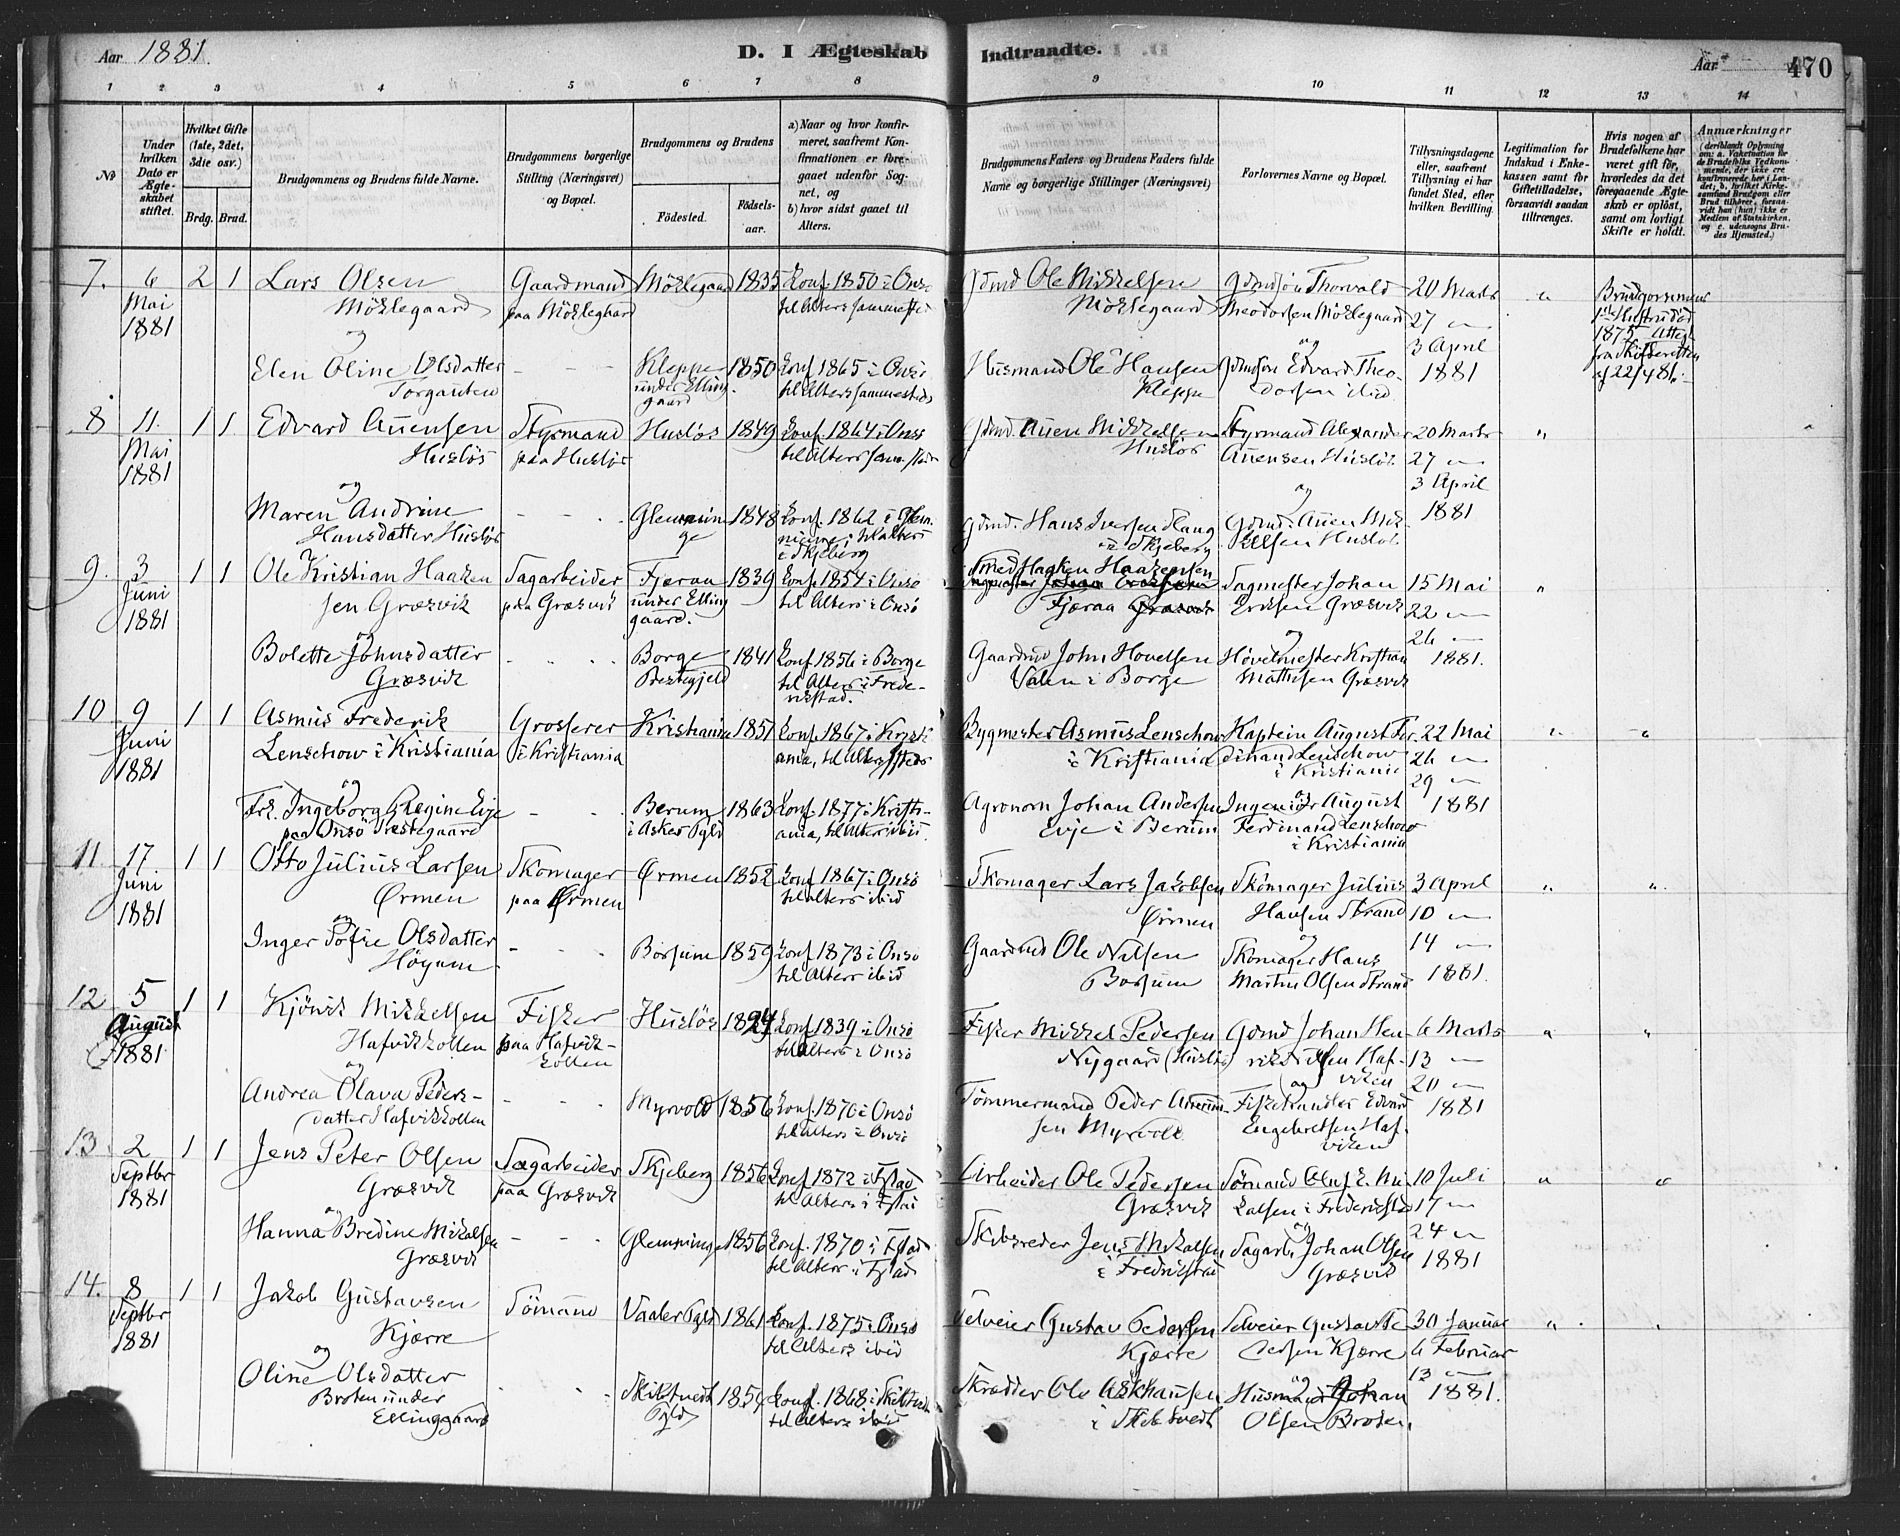 Aar 1881.
D. I Ægteskab Indtraadte.
Aar 470
1 2 3 4 5 6 7 8 9 10 11 12 13 14
No
Under hvilken Dato er Ægteskabet stiftet.
Hvilket Gifte (1ste, 2det, 3die osv.)
Brdg. Brud.
Brudgommens og Brudens fulde Navne.
Brudgommens borgerlige Stilling (Næringsvei) og Bopæl.
Brudgommens og Brudens
Fødested.
Fødselsaar.
a) Naar og hvor konfirmeret, saafremt Konfirmationen er foregaaet udenfor Sognet, og
b) hvor sidst gaaet til Alters.
Brudgommens Faders og Brudens Faders fulde Navne og borgerlige Stillinger (Næringsvei)
Forlovernes Navne og Bopæl.
Tillysningsdagene eller, saafremt Tillysning ei har fundet Sted, efter hvilken Bevilling.
Legitimation for Indskud i Enkekassen samt for Giftetilladelse, forsaavidt saadan tiltrænges.
Hvis nogen af Brudefolkene har været gift før, hvorledes da det foregaaende Ægteskab er opløst, samt om lovligt Skifte er holdt.
Anmærkninger
7. 6 Mai 1881 2 1
Lars Olsen Møklegaard
Gaardmand paa Møklegaard
Møklegaard 1835
Konf. 1850 i Onsø til Alters sammesteds
Gdmd Ole Mikkelsen Møklegaard
Gdmdsøn Thorvald Theodorsen Møklegaard
20 Marts 27 — 3 April 1881
"
Brudgommens 1ste Hustru død 1875 Attest fra Skifteretten af 22/4 81.
og
Elen Oline Olsdatter Torgauten
- - -
Kleppe under Ellinggaard 1850
Konf. 1865 i Onsø til Alters sammesteds
Husmand Ole Hansen Kleppe
og Gdmdsøn Edvard Theodorsen ibid
8 11. Mai 1881 1 1
Edvard Auensen Husløs
Styrmand paa Husløs
Husløs 1849
Konf. 1864 i Onsø til Alters sam. steds
Gdmd. Auen Mikkelsen Husløs
Styrmand Alexander Auensen Husløs
20 Marts 27 — 3 April 1881
"
og
Maren Andrine Hansdatter Husløs
- - -
Glemminge 1848
Konf. 1862 i Glemminge, til Alters i Skjeberg
Gdmd. Hans Iversen Haug i Skjeberg
og Gdmd. Auen Mikkelsen Husløs
9. 3 Juni 1881 1 1
Ole Kristian Haakensen Græsvik
Sagarbeider paa Græsvik
Fjæraa under Ellinggaard. 1839
Konf. 1854 i Onsø til Alters i Onsø
Smed Haaken Haakensen Fjæraa
Sagmester Johan Eriksen Græsvik
15 Mai 22 — 26 — 1881.
"
og
Bolette Johnsdatter Græsvik
- - -
Borge Prestegjeld 1841
Konf. 1856 i Borge til Alters i Frederikstad.
Gaardmd John Hovelsen Valen i Borge
og Høvelmester Kristian Mathisen Græsvik
10 9 Juni 1881 1 1
Asmus Frederik Lenschow i Kristiania
Grosserer i Kristiania
Kristiania 1851
Konf. 1867 i Kristiania, til Alters ssteds
Bygmester Asmus Lenschow i Kristiania
Kaptein August Ferdinand Lenschow i Kristiania
22 Mai 26 — 29 — 1881
" "
og
Frk. Ingeborg Regine Evje paa Onsø Prestegaard
- - -
Berum i Asker Pgld 1863
Konf. 1877 i Kristiania, til Alters ibid.
Agronom Johan Andersen Evje i Berum
og Ingeniør August Ferdinand Lenschow i Kristiania
11. 17 Juni 1881 1 1
Otto Julius Larsen Ørmen
Skomager paa Ørmen
Ørmen 1852
Konf. 1867 i Onsø til Alters ibid
Skomager Lars Jakobsen Ørmen
Skomager Julius Hansen Strand
3 April 10 — 14 — 1881.
" "
og
Inger Sofie Olsdatter Høyum
- - -
Borsum 1859
Konf. 1873 i Onsø til Alters ibid
Gaardmd Ole Nilsen Borsum
og Skomager Hans Martin Olsen Strand
12 5 August 1881. 1 1
Kjønik Mikkelsen Hafvikkollen
Fisker paa Hafvikkollen
Husløs 1824
Konf. 1839 i Onsø til Alters i Onsø
Fisker Mikkel Pedersen Nygaard (Husløs)
Gdmd Johan Henrik Olsen Hafviken
6 Marts 13 — 20 — 1881
" "
og
Andrea Olava Pedersdatter Hafvikkollen
- - -
Myrvold 1856
Konf. 1870 i Onsø til Alters i Onsø
Tømmermand Peder Myrvold
og Fiskehandler Edvard Engebretsen Hafviken
13. 2 Septbr 1881 1 1
Jens Peter Olsen Græsvik
Sagarbeider paa Græsvik
Skjeberg 1856
Konf. 1872 i Fstad til Alters i Fstad
Arbeider Ole Pedersen Græsvik
Sømand Oluf E. Mikalsen i Frederikstad
10 Juli 17 — 24 — 1881
" "
og
Hanna Bredine Mikalsen Græsvik
- - -
Glemminge 1856
Konf. 1870 i Fstad til Alters i Fstad
Skibsreder Jens Mikalsen i Fredrikstad
og Sagarb. Johan Olsen Græsvik
14. 8 Septbr 1881 1 1
Jakob Gustavsen Kjærre
Sømand
Vaaler Pgld 1861
Konf. 1875 i Onsø til Alters ibid
Selveier Gustav Pedersen Kjærre
Selveier Gustav Pedersen Kjærre
30 Januar 6 Februar 13 — 1881.
" "
og
Oline Olsdatter Broten under Ellinggaard
- - -
Skibtvedt Pgld 1854
Konf. 1868 i Skibtvedt til Alters ibid
Skrædder Ole Askhausen i Skibtvedt
og Husmand Johan Olsen Broten.